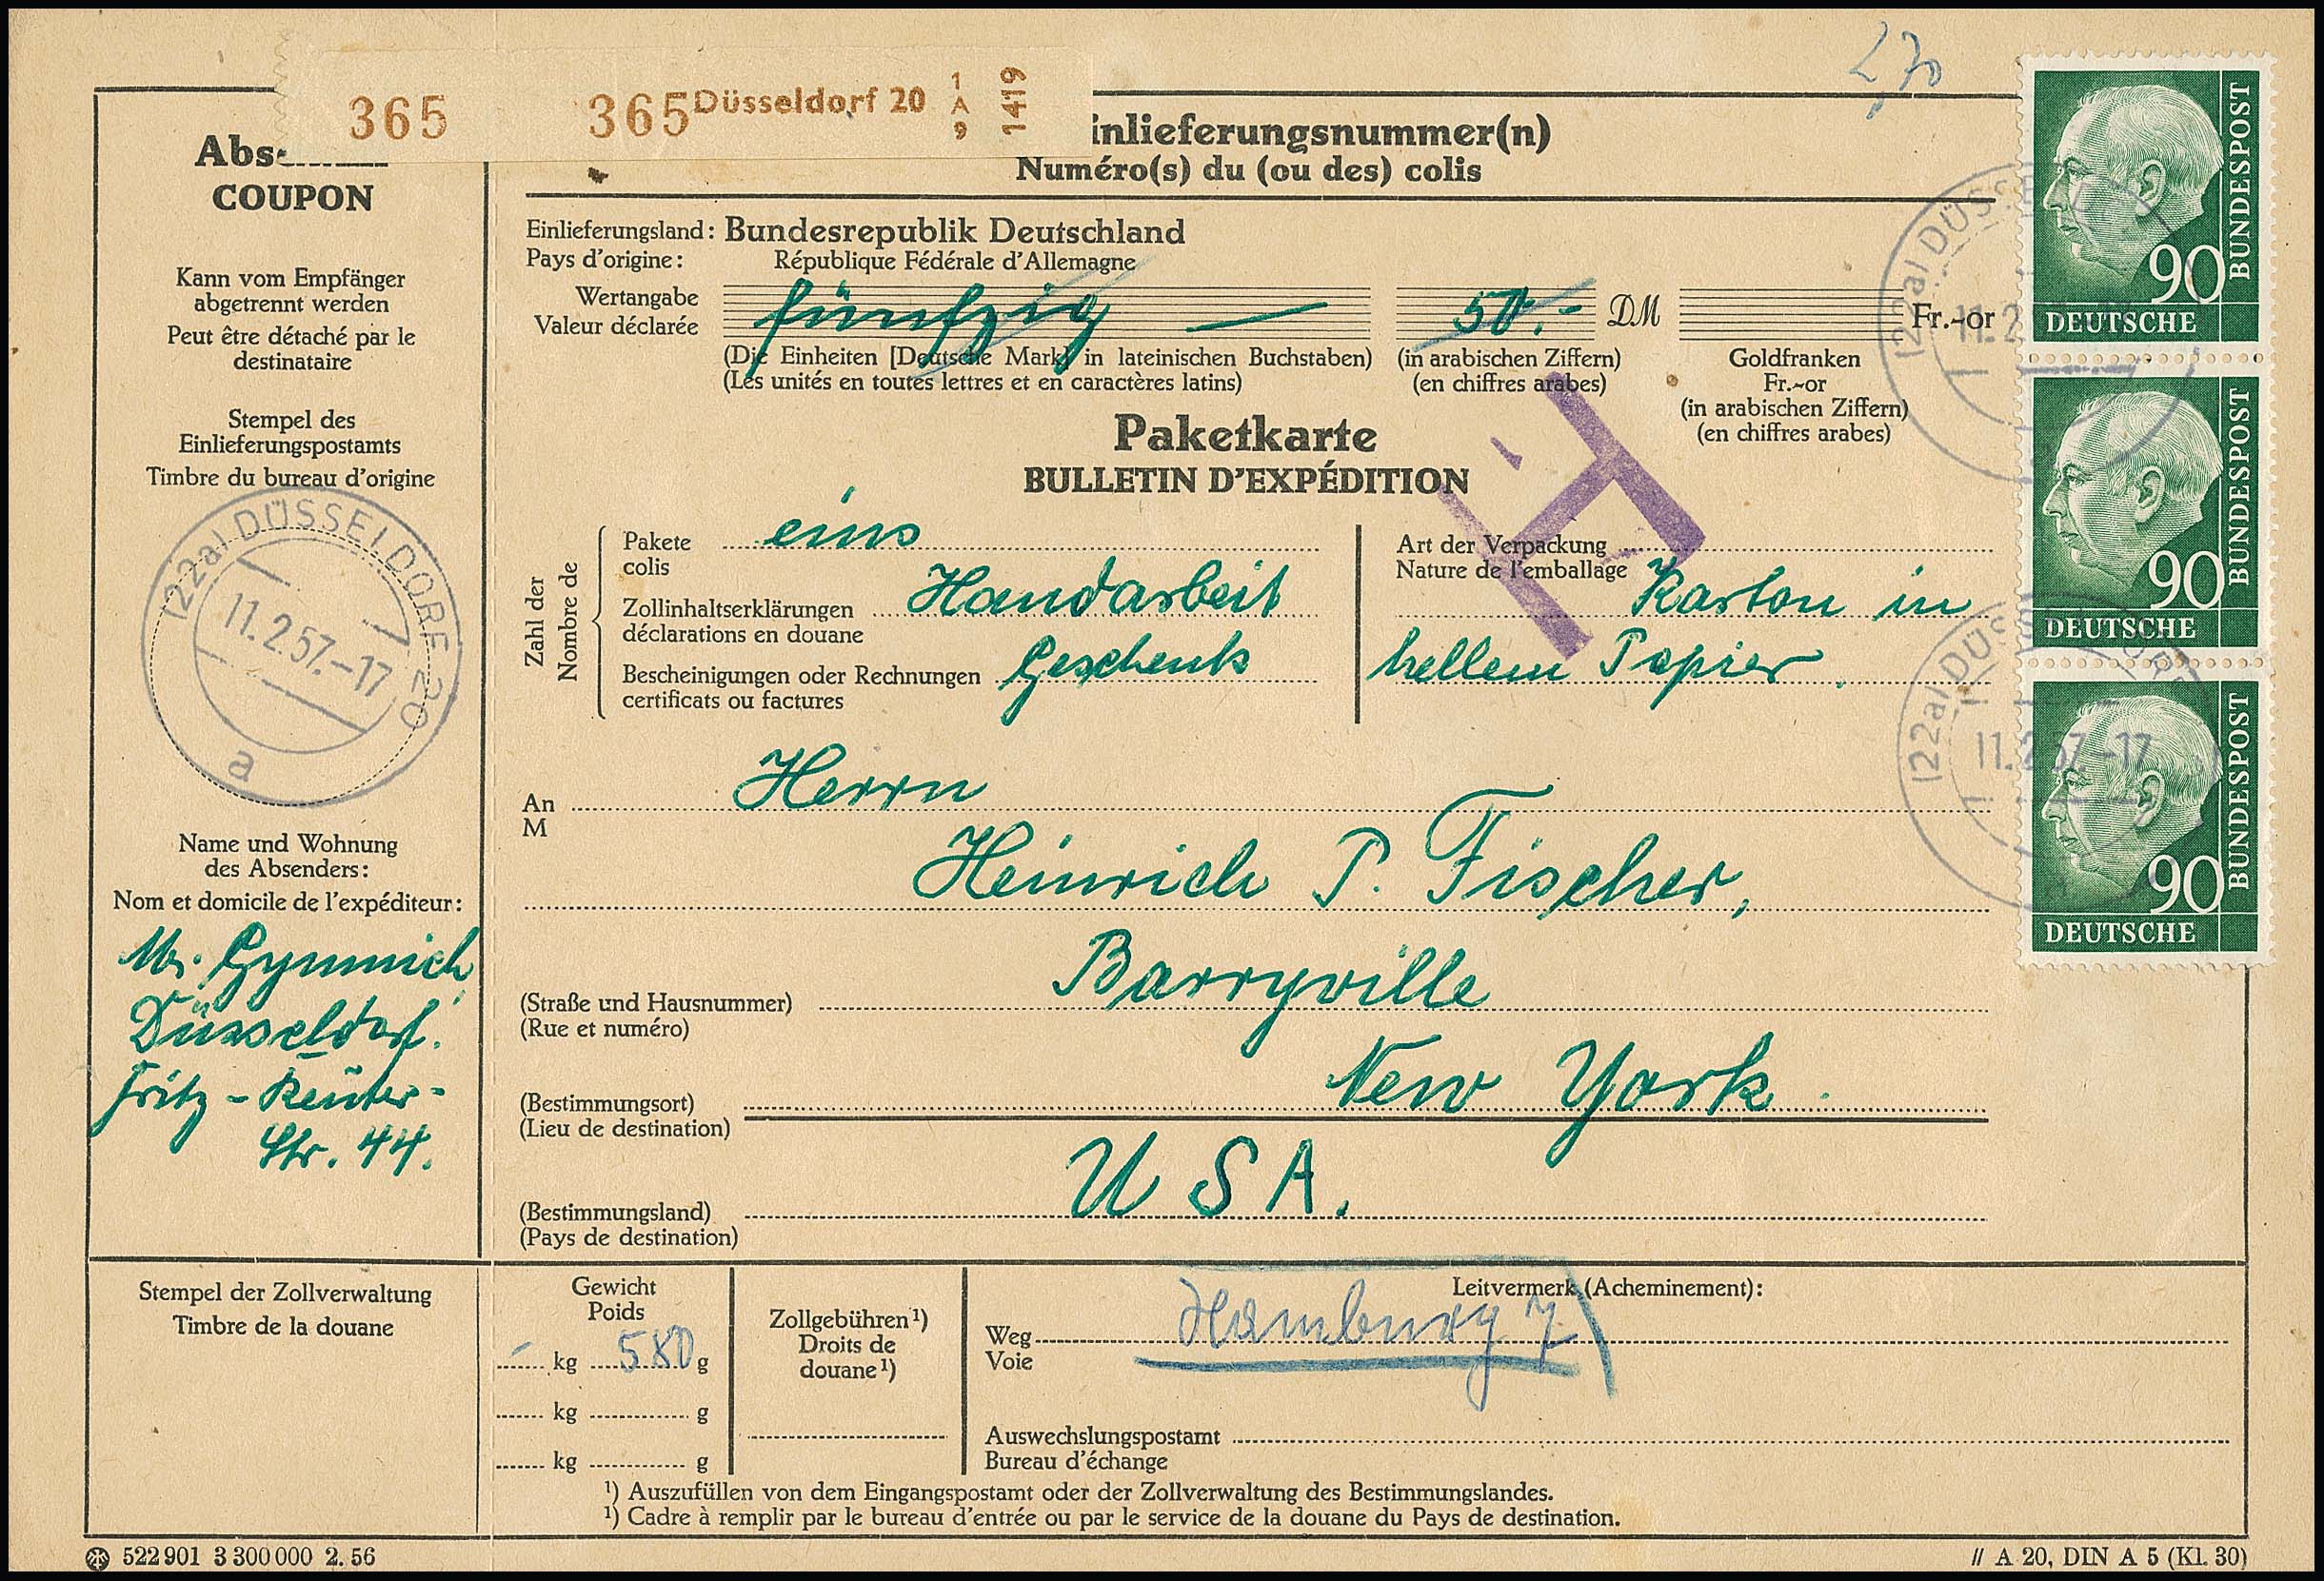 2,70
365 365 Düsseldorf 20 1 A 9 1419
inlieferungsnummer(n)
Numéro(s) du (ou des) colis
Abs
COUPON
Kann vom Empfänger
abgetrennt werden
Peut être détaché par le
destinataire
Stempel des
Einlieferungspostamts
Timbre du bureau d'origine
(22a) DÜSSELDORF 20
11.2.57.-17
a
Name und Wohnung
des Absenders:
Nom et domicile de l'expéditeur:
Gymnich,
Düsseldorf.
Fritz-Reuter-
Str. 44.
Einlieferungsland: Bundesrepublik Deutschland
Pays d'origine: République Fédérale d'Allemagne
Wertangabe
Valeur déclarée fünfzig — 50.- DM Fr.-or
(Die Einheiten [Deutsche Mark] in lateinischen Buchstaben) (in arabischen Ziffern) Goldfranken
(Les unités en toutes lettres et en caractères latins) (en chiffres arabes) Fr.-or
(in arabischen Ziffern)
(en chiffres arabes)
Paketkarte
BULLETIN D'EXPÉDITION
Zahl der
Nombre de
Pakete eins
colis
Zollinhaltserklärungen Handarbeit
déclarations en douane
Bescheinigungen oder Rechnungen Geschenk
certificats ou factures
Art der Verpackung
Nature de l'emballage Karton in
hellem Papier.
An Herrn
M
Heinrich P. Fischer,
(Straße und Hausnummer) Barryville
(Rue et numéro)
(Bestimmungsort) New York.
(Lieu de destination)
(Bestimmungsland) USA.
(Pays de destination)
90 BUNDESPOST
DEUTSCHE
90 BUNDESPOST
DEUTSCHE
90 BUNDESPOST
DEUTSCHE
(22a) DÜSSEL
11.2
(22a) DÜSS DORF
11.2.57.-17
Stempel der Zollverwaltung
Timbre de la douane
Gewicht
Poids
- kg 580 g
kg g
kg g
Zollgebühren ¹)
Droits de
douane ¹)
Leitvermerk (Acheminement):
Weg Hamburg 7
Voie
Auswechslungspostamt
Bureau d'échange
¹) Auszufüllen von dem Eingangspostamt oder der Zollverwaltung des Bestimmungslandes.
¹) Cadre à remplir par le bureau d'entrée ou par le service de la douane du Pays de destination.
522 901 3 300 000 2. 56
// A 20, DIN A 5 (Kl. 30)